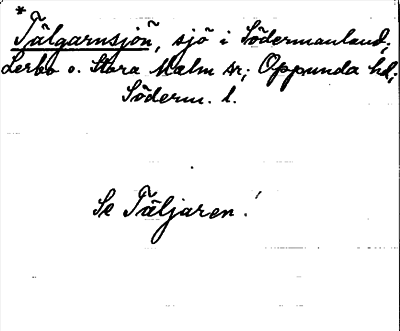 * Tälgarnsjön, sjö i Södermanland;
Lerbo o. Stora Malm sr; Oppunda hd;
Söderm. l.
Se Täljaren!